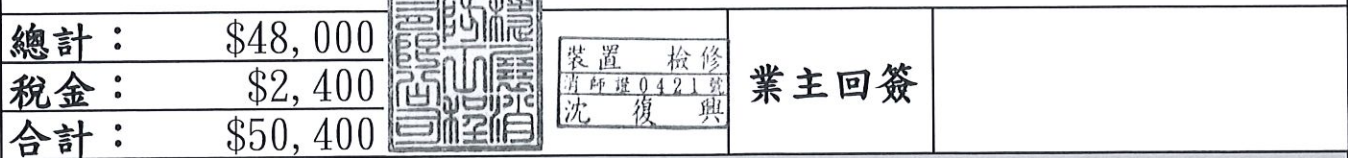 總計： $48,000
稅金： $2,400
合計： $50,400
裝置 檢修
消師證0421號
沈復興
業主回簽